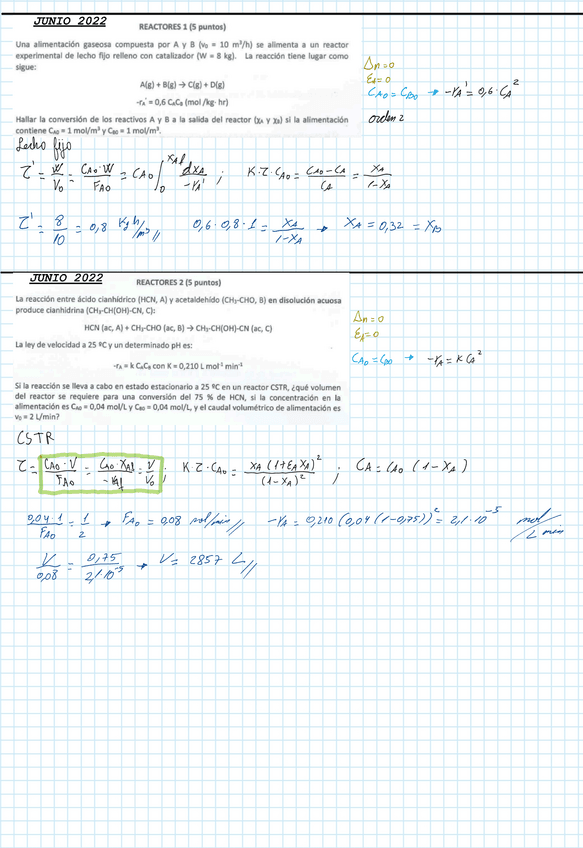 JUNIO 2022
REACTORES 1 (5 puntos)
Una alimentación gaseosa compuesta por A y B (v₀ = 10 m³/h) se alimenta a un reactor
experimental de lecho fijo relleno con catalizador (W = 8 kg). La reacción tiene lugar como
sigue:
A(g) + B(g) → C(g) + D(g)
-rₐ' = 0,6 CₐCʙ (mol /kg· hr)
Hallar la conversión de los reactivos A y B a la salida del reactor (χₐ y χʙ) si la alimentación
contiene Cᴀ₀ = 1 mol/m³ y Cʙ₀ = 1 mol/m³.
Δn=0
Ɛᴀ=0
Cᴀ₀ = Cʙ₀ → -rᴀ' = 0,6 · Cᴀ²
orden 2
Lecho fijo
τ' = W/V₀ = Cᴀ₀·W/Fᴀ₀ = Cᴀ₀ ∫₀^Xᴀf dXᴀ/-rᴀ' ; K·τ·Cᴀ₀ = Cᴀ₀-Cᴀ/Cᴀ = Xᴀ/1-Xᴀ
τ' = 8/10 = 0,8 Kg h/m³ // 0,6 · 0,8 · 1 = Xᴀ/1-Xᴀ → Xᴀ = 0,32 = Xʙ
JUNIO 2022
REACTORES 2 (5 puntos)
La reacción entre ácido cianhídrico (HCN, A) y acetaldehído (CH₃-CHO, B) en disolución acuosa
produce cianhidrina (CH₃-CH(OH)-CN, C):
HCN (ac, A) + CH₃-CHO (ac, B) → CH₃-CH(OH)-CN (ac, C)
La ley de velocidad a 25 ºC y un determinado pH es:
-rₐ = k CₐCʙ con K = 0,210 L mol⁻¹ min⁻¹
Si la reacción se lleva a cabo en estado estacionario a 25 ºC en un reactor CSTR, ¿qué volumen
del reactor se requiere para una conversión del 75 % de HCN, si la concentración en la
alimentación es Cᴀ₀ = 0,04 mol/L y Cʙ₀ = 0,04 mol/L, y el caudal volumétrico de alimentación es
v₀ = 2 L/min?
Δn=0
Ɛᴀ=0
Cᴀ₀ = Cʙ₀ → -rᴀ = K Cᴀ²
CSTR
τ = Cᴀ₀·V/Fᴀ₀ = Cᴀ₀·Xᴀf/-rᴀf = V/V₀ ; K·τ·Cᴀ₀ = Xᴀ (1+Ɛᴀ Xᴀ)²/(1-Xᴀ)² ; Cᴀ = Cᴀ₀ (1-Xᴀ)
0,04·1/Fᴀ₀ = 1/2 → Fᴀ₀ = 0,08 mol/min // -rᴀ = 0,210 (0,04 (1-0,75))² = 2,1·10⁻⁵ mol/L min
V/0,08 = 0,75/2,1·10⁻⁵ → V = 2857 L //